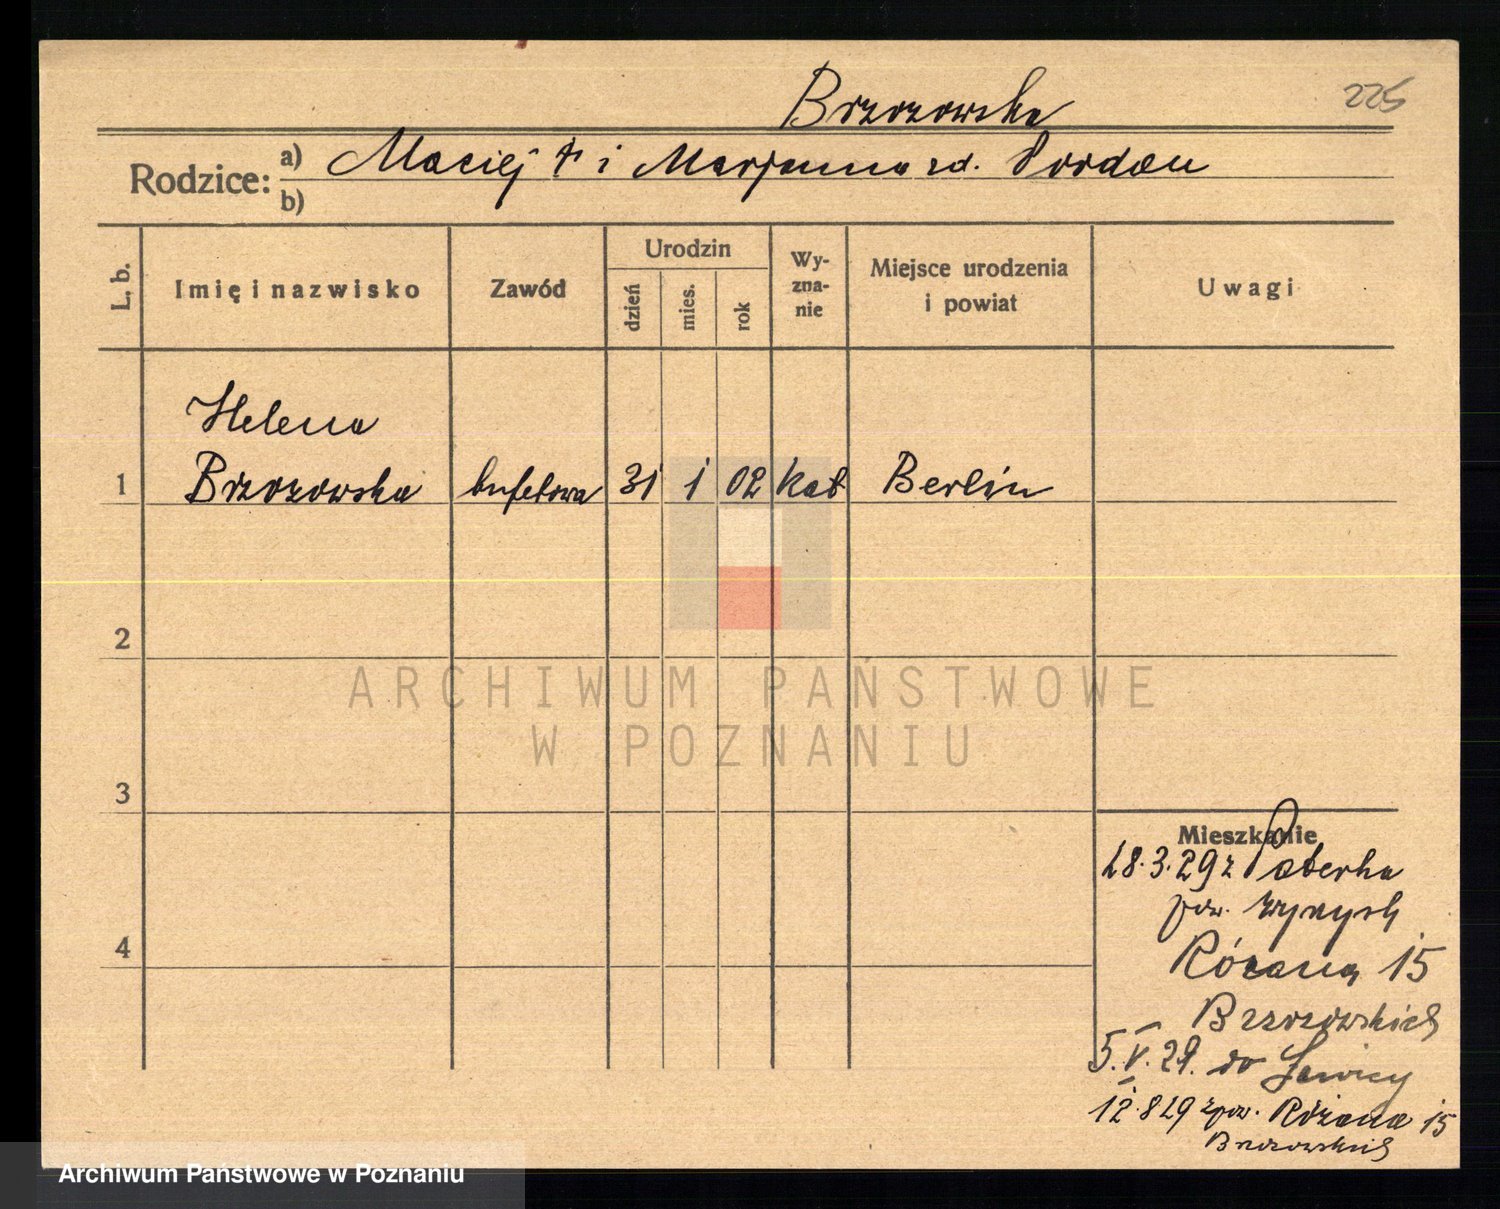 Brzozowska
225
Rodzice: a) Maciej † i Marjanna zd. Dordou
b)
L. b.
Imię i nazwisko
Zawód
Urodzin
dzień
mies.
rok
Wy-
zna-
nie
Miejsce urodzenia
i powiat
Uwagi
Helena
1 Brzozowska bufetowa 31 1 02 kat Berlin
2
3
4
Mieszkanie
28.3.29 z
pow.
Różana 15
Brzozowskich
5.V.29. do Ławicy
12.8 29 zpow. Różana 15
Brzozowskich
ARCHIWUM PAŃSTWOWE
W POZNANIU
Archiwum Państwowe w Poznaniu